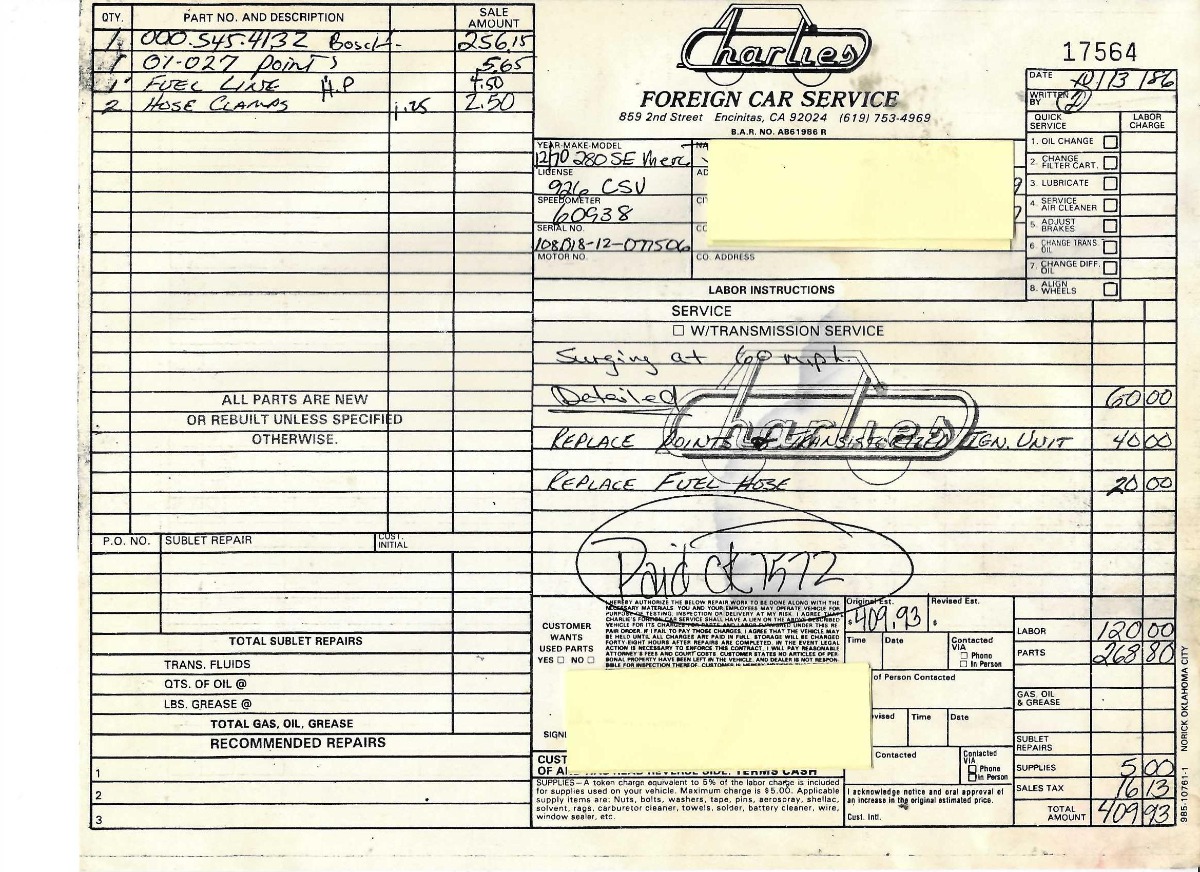 QTY. PART NO. AND DESCRIPTION SALE AMOUNT
1 000.545.4132 Bosch 256.15
1 01-027 Points 5.65
1 FUEL LINE H.P 4.50
2 HOSE CLAMPS 1.25 2.50
ALL PARTS ARE NEW
OR REBUILT UNLESS SPECIFIED
OTHERWISE.
P.O. NO. SUBLET REPAIR CUST. INITIAL
TOTAL SUBLET REPAIRS
TRANS. FLUIDS
QTS. OF OIL @
LBS. GREASE @
TOTAL GAS, OIL, GREASE
RECOMMENDED REPAIRS
1
2
3
Charlies
FOREIGN CAR SERVICE
859 2nd Street Encinitas, CA 92024 (619) 753-4969
B.A.R. NO. AB61986 R
17564
DATE 10/13/86
WRITTEN BY
QUICK SERVICE LABOR CHARGE
1. OIL CHANGE
2. CHANGE FILTER CART.
3. LUBRICATE
4. SERVICE AIR CLEANER
5. ADJUST BRAKES
6. CHANGE TRANS. OIL
7. CHANGE DIFF. OIL
8. ALIGN WHEELS
YEAR-MAKE-MODEL
280 SE Merc
LICENSE
926 CSV
SPEEDOMETER
60938
SERIAL NO.
MOTOR NO.
CO. ADDRESS
LABOR INSTRUCTIONS
SERVICE
☐ W/TRANSMISSION SERVICE
Surging at 60 m.p.h.
Detailed 60 00
Charlies
REPLACE POINTS & TRANSISTORIZED IGN. UNIT 40 00
REPLACE FUEL HOSE 20 00
Paid ck 7572
CUSTOMER
WANTS
USED PARTS
YES ☐ NO ☐
I HEREBY AUTHORIZE THE BELOW REPAIR WORK TO BE DONE ALONG WITH THE
NECESSARY MATERIALS. YOU AND YOUR EMPLOYEES MAY OPERATE VEHICLE FOR
PURPOSE OF TESTING, INSPECTION OR DELIVERY AT MY RISK. I AGREE THAT
CHARLIE'S FOREIGN CAR SERVICE SHALL HAVE A LIEN ON THE ABOVE DESCRIBED
VEHICLE FOR ITS CHARGES FOR PARTS AND LABOR FURNISHED UNDER THIS RE-
PAIR ORDER. IF I FAIL TO PAY THOSE CHARGES, I AGREE THAT THE VEHICLE MAY
BE HELD UNTIL ALL CHARGES ARE PAID IN FULL. STORAGE WILL BE CHARGED
FORTY-EIGHT HOURS AFTER REPAIRS ARE COMPLETED. IN THE EVENT LEGAL
ACTION IS NECESSARY TO ENFORCE THIS CONTRACT, I WILL PAY REASONABLE
ATTORNEY'S FEES AND COURT COSTS. CUSTOMER STATES NO ARTICLES OF PER-
SONAL PROPERTY HAVE BEEN LEFT IN THE VEHICLE, AND DEALER IS NOT RESPON-
SIBLE FOR INSPECTION THEREOF.
SIGN
CUST
HAS READ REVERSE SIDE. TERMS CASH
SUPPLIES—A token charge equivalent to 5% of the labor charge is included
for supplies used on your vehicle. Maximum charge is $5.00. Applicable
supply items are: Nuts, bolts, washers, tape, pins, aerospray, shellac,
solvent, rags, carburetor cleaner, towels, solder, battery cleaner, wire,
window sealer, etc.
Original Est. Revised Est.
$409.93
Time Date Contacted VIA
☐ Phone
☐ In Person
of Person Contacted
vised Time Date
Contacted Contacted VIA
☐ Phone
☐ In Person
I acknowledge notice and oral approval of
an increase in the original estimated price.
Cust. Intl.
LABOR 120 00
PARTS 268 80
GAS, OIL & GREASE
SUBLET REPAIRS
SUPPLIES 5 00
SALES TAX 16 13
TOTAL AMOUNT 409 93
985-10761-1 NORICK OKLAHOMA CITY